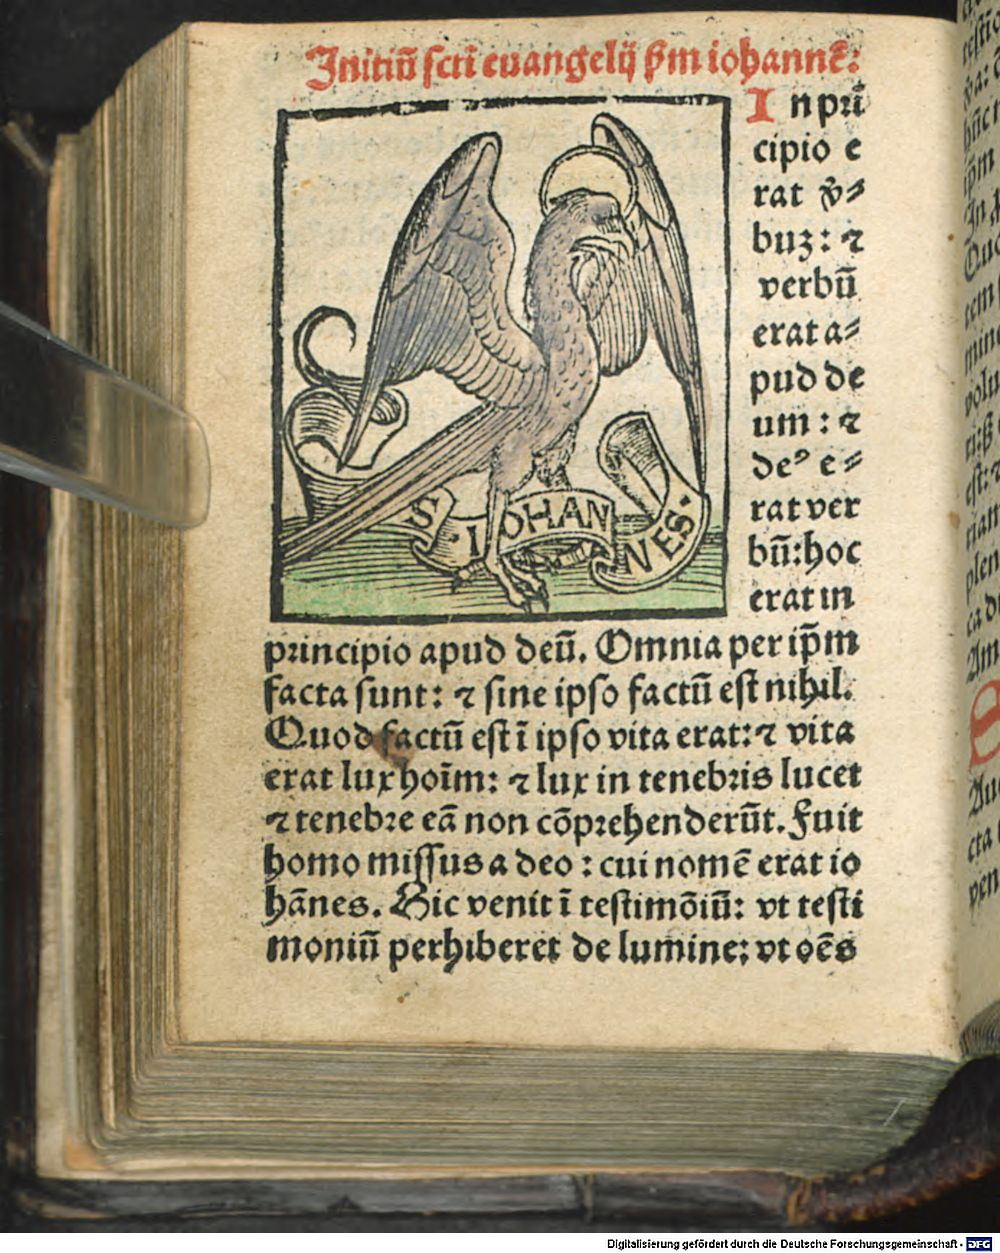 Initiū scti euangelij ẜm iohannē:
In pri
cipio e
rat v̄-
buʒ: ⁊
verbū
erat a-
pud de
um: ⁊
deꝰ e-
rat ver
bū: hoc
erat in
S. IOHAN
NES.
principio apud deū. Omnia per ip̄m
facta sunt: ⁊ sine ipso factū est nihil.
Quod factū est ī ipso vita erat: ⁊ vita
erat lux hoīm: ⁊ lux in tenebris lucet
⁊ tenebre eā non cōprehenderūt. Fuit
homo missus a deo: cui nomē erat io
hānes. Hic venit ī testimōiū: vt testi
moniū perhiberet de lumine: vt oēs
Digitalisierung gefördert durch die Deutsche Forschungsgemeinschaft - DFG